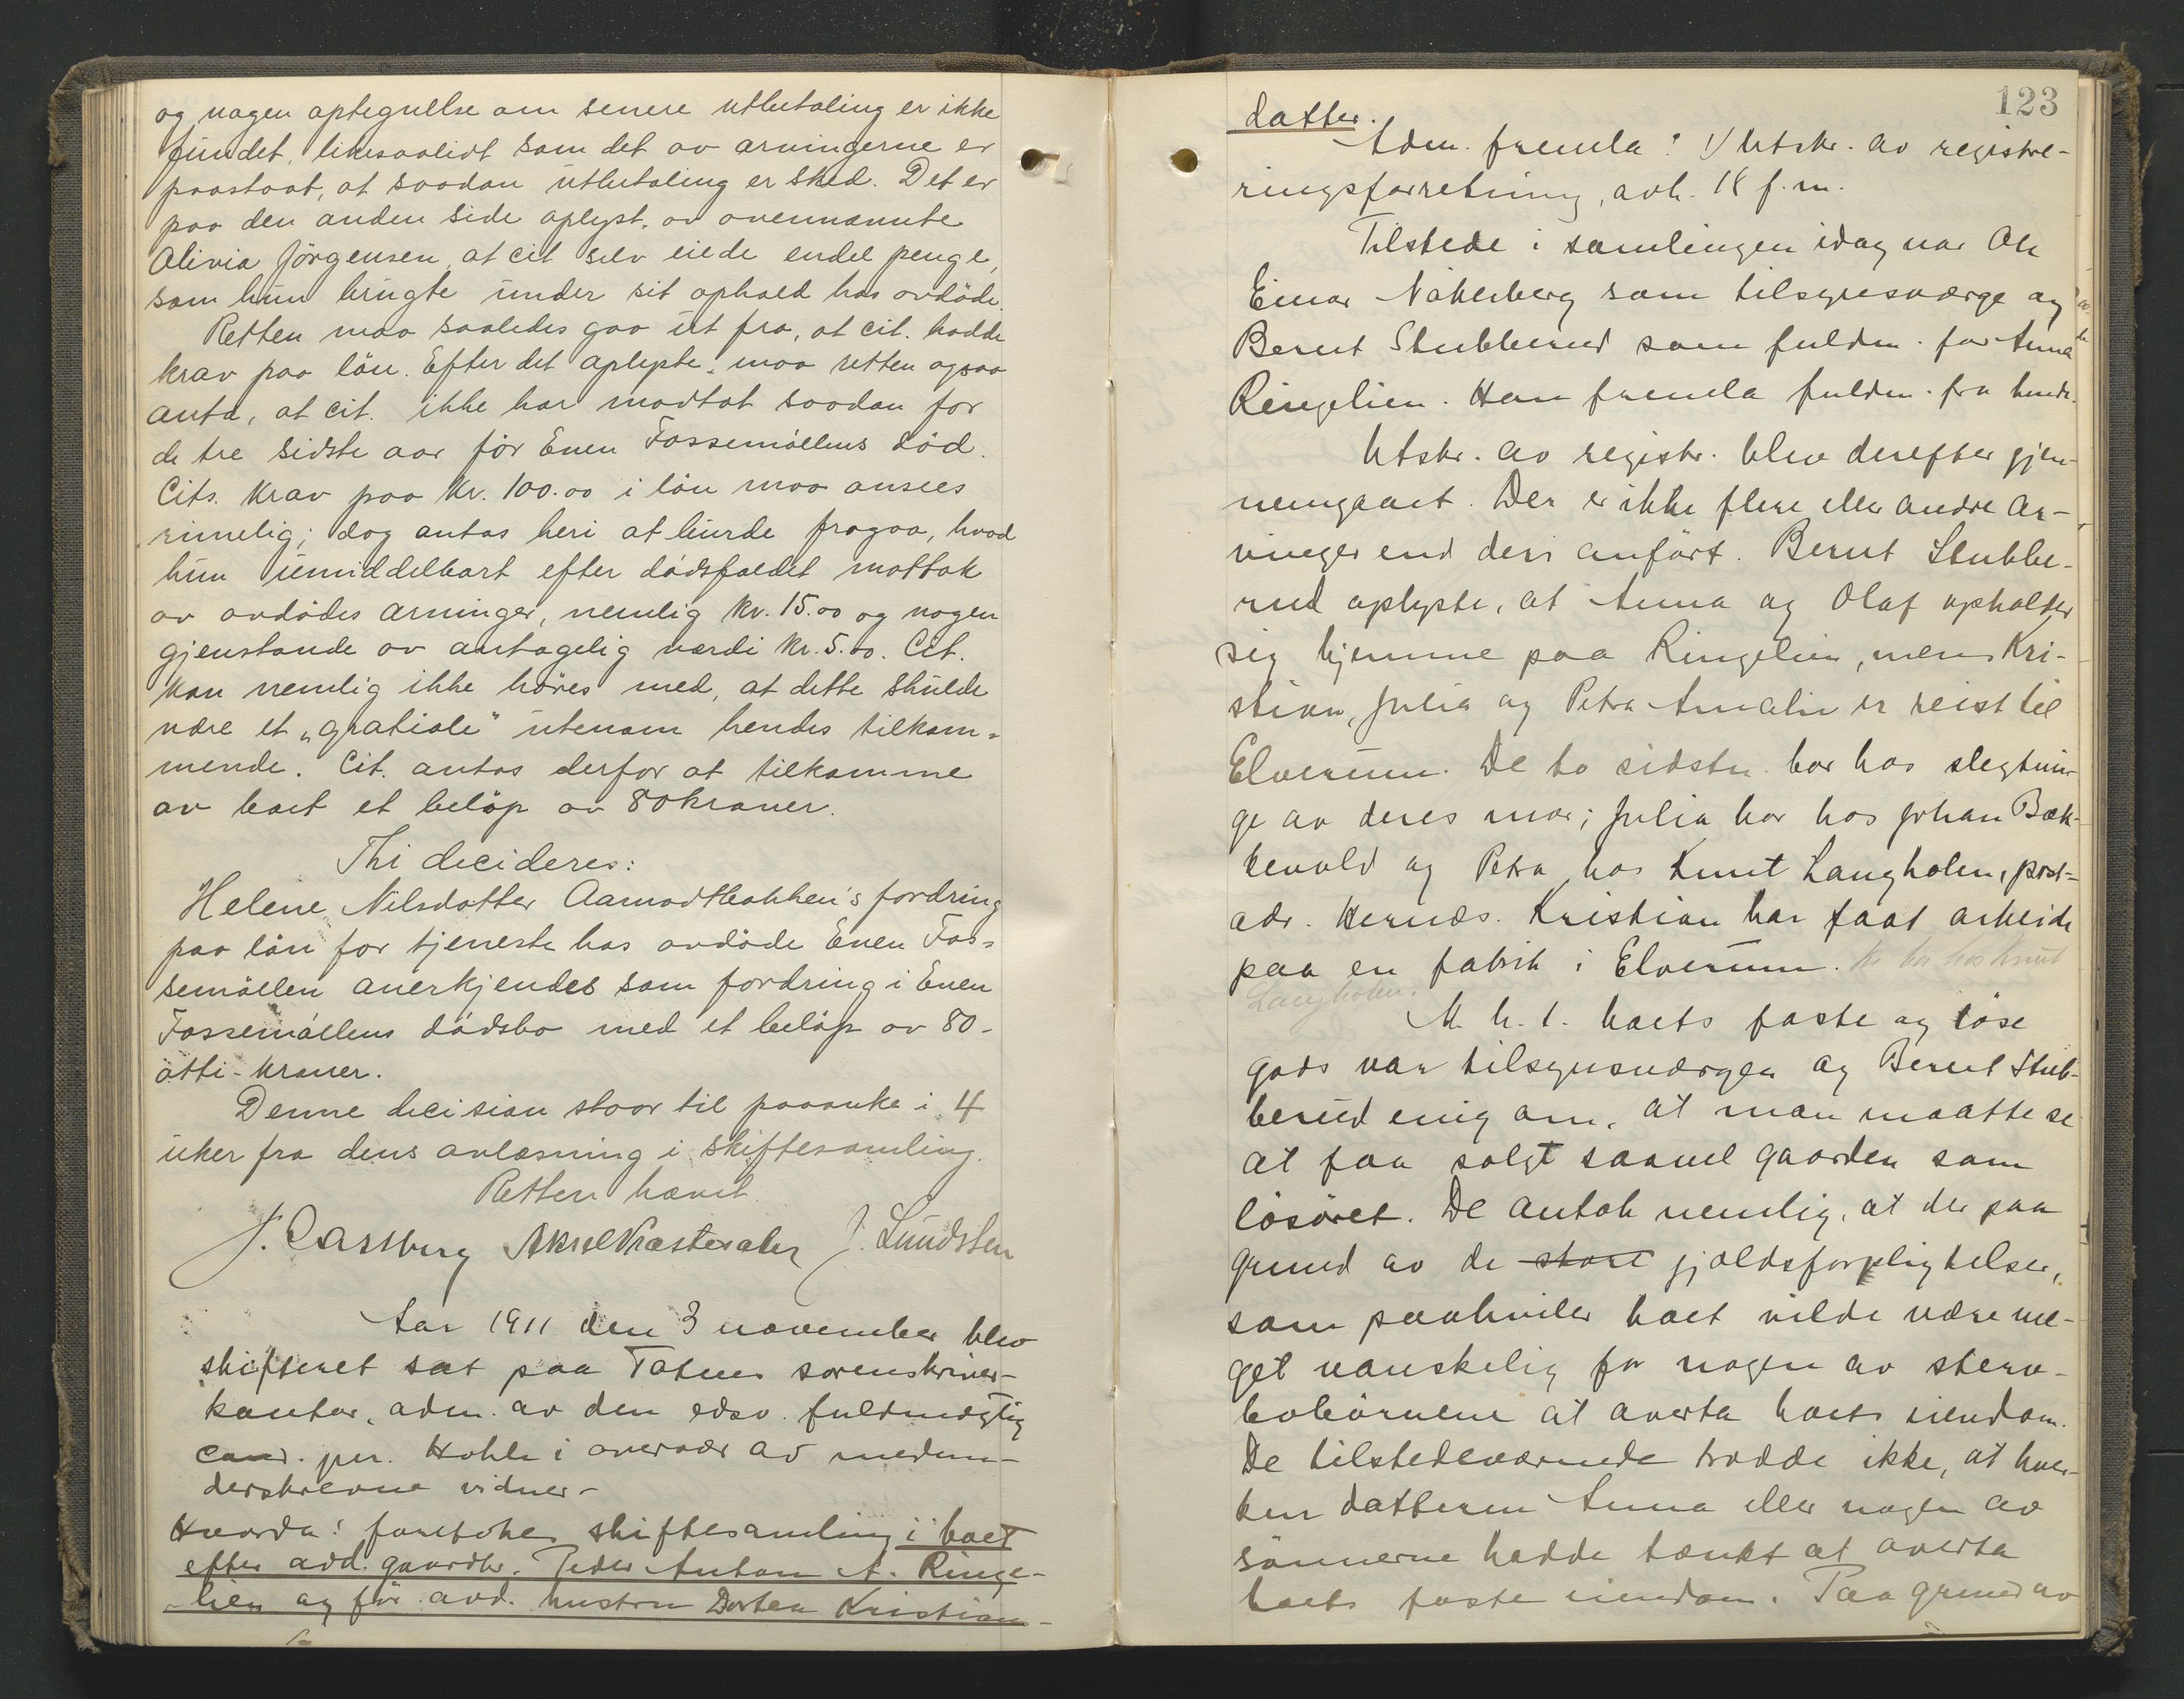 og nogen optegnelse om senere utbetaling er ikke
fundet, likesaalidt som det av arvingerne er
paastaat, at saadan utbetaling er sked. Det er
paa den anden side oplyst, av ovennævnte
Olivia Jörgensen, at cit selv eiede endel penge,
som hun brugte under sit ophold hos avdöde.
Retten maa saaledes gaa ut fra, at cit. hadde
krav paa lön. Efter det oplyste, maa retten ogsaa
anta, at cit. ikke har modtat saadan for
de tre sidste aar för Even Fossemöllens död.
Cits. krav paa kr. 100.00 i lön maa ansees
rimelig; dog antas heri at burde fragaa, hvad
hun umiddelbart efter dödsfaldet mottok
av avdödes arvinger, nemlig kr. 15.00 og nogen
gjenstande av antagelig værdi kr. 5.00. Cit.
kan nemlig ikke höres med, at dette skulde
være et „gratiale" utenom hendes tilkom-
mende. Cit. antas derfor at tilkomme
av boet et belöp av 80 kroner.
Thi decideres:
Helene Nilsdatter Aamodtbakken's fordring
paa lön for tjeneste hos avdöde Even Fos-
semöllen anerkjendes som fordring i Even
Fossemöllens dödsbo med et belöp av 80-
otti- kroner.
Denne decision staar til paaanke i 4
uker fra dens avlæsning i skiftesamling.
Retten hævet.
J. Carsberg Aksel J. Lundsten
Aar 1911 den 3 november blev
skifteret sat paa Totens sorenskriver-
kontor, adm. av den edsv. fuldmægtig
cand. jur. Hohle i overvær av medun-
derskrevne vidner-
Hvorda: foretokes skiftesamling i boet
efter avd. gaardbr. Peder Anton A. Ringe-
lien og för avd. hustru Dortea Kristian-
123
datter.
Adm. fremla: 1/ Utskr. av registre-
ringsforretning, avh. 18 f. m.
Tilstede i samlingen idag var Ole
Einar Nökleberg som tilsynsværge og
Bernt Stubberud som fuldm. for Anna
Ringelien. Han fremla fuldm. fra hende.
Utskr. av registr. blev derefter gjen-
nemgaaet. Der er ikke flere eller andre ar-
vinger end deri anfört. Bernt Stubbe-
rud oplyste, at Anna og Olaf opholder
sig hjemme paa Ringelien, mens Kri-
stian, Julia og Petra Amalie er reist til
Elverum. De to sidstn. bor hos slegtnin-
ge av deres mor; Julia bor hos Johan Bæk-
kevold og Petra hos Knut Langholen, post-
adr. Hernæs. Kristian har faat arbeide
paa en fabrik i Elverum. bor hos Knut
Langholen.
M. h. t. boets faste og löse
gods var tilsynsværgen og Bernt Stub-
berud enig om, at man maatte se
at faa solgt saavel gaarden som
lösöret. De antok nemlig, at der paa
grund av de store gjældsforpligtelser,
som paahviler boet vilde være me-
get vanskelig for nogen av sterv-
bobörnene at overta boets eiendom.
De tilstedeværende trodde ikke, at hver-
ken datteren Anna eller nogen av
sönnerne hadde tænkt at overta
boets faste eiendom. Paa grund av